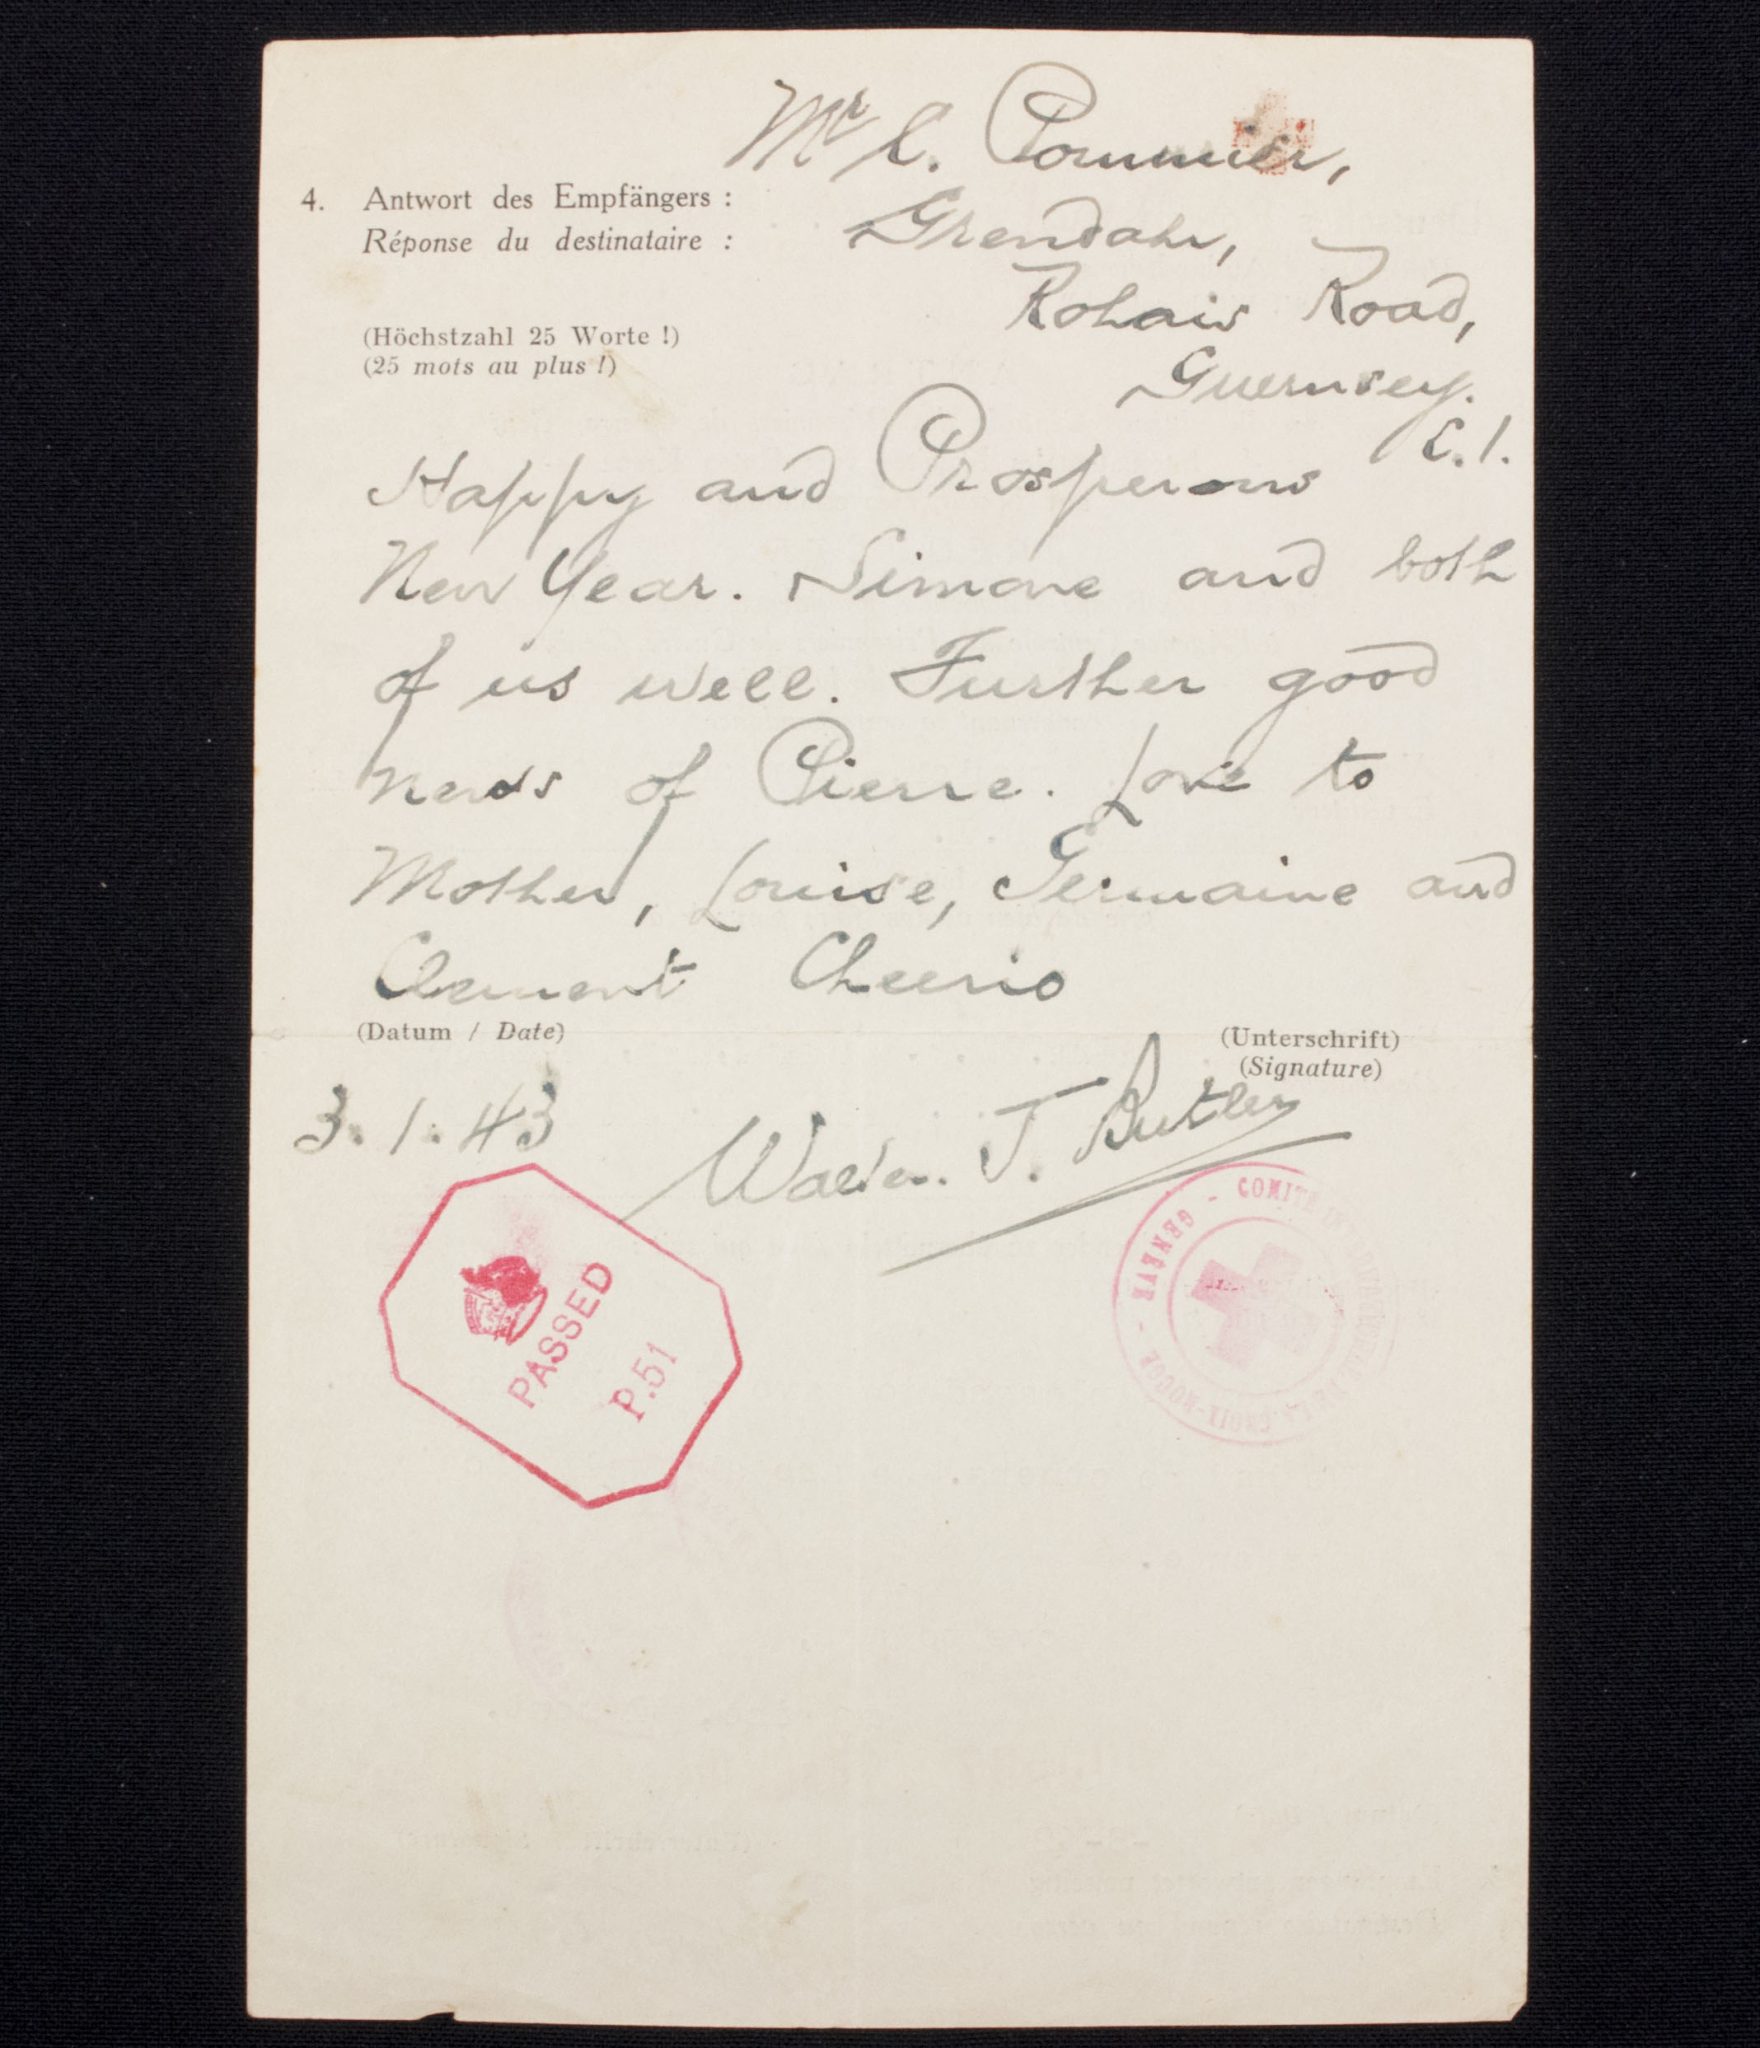 Mr C. Pommier,
4. Antwort des Empfängers :
Réponse du destinataire :
Grendahr,
Rohais Road,
(Höchstzahl 25 Worte !)
(25 mots au plus !)
Guernsey.
C.I.
Happy and Prosperous
New Year. Simone and both
of us well. Further good
news of Pierre. Love to
Mother, Louise, Germaine and
Clement Cheerio
(Datum / Date)
(Unterschrift)
(Signature)
3.1.43
Walter. J. Butler
PASSED
P.51
COMITÉ INTERNATIONAL DE LA CROIX-ROUGE - GENÈVE -